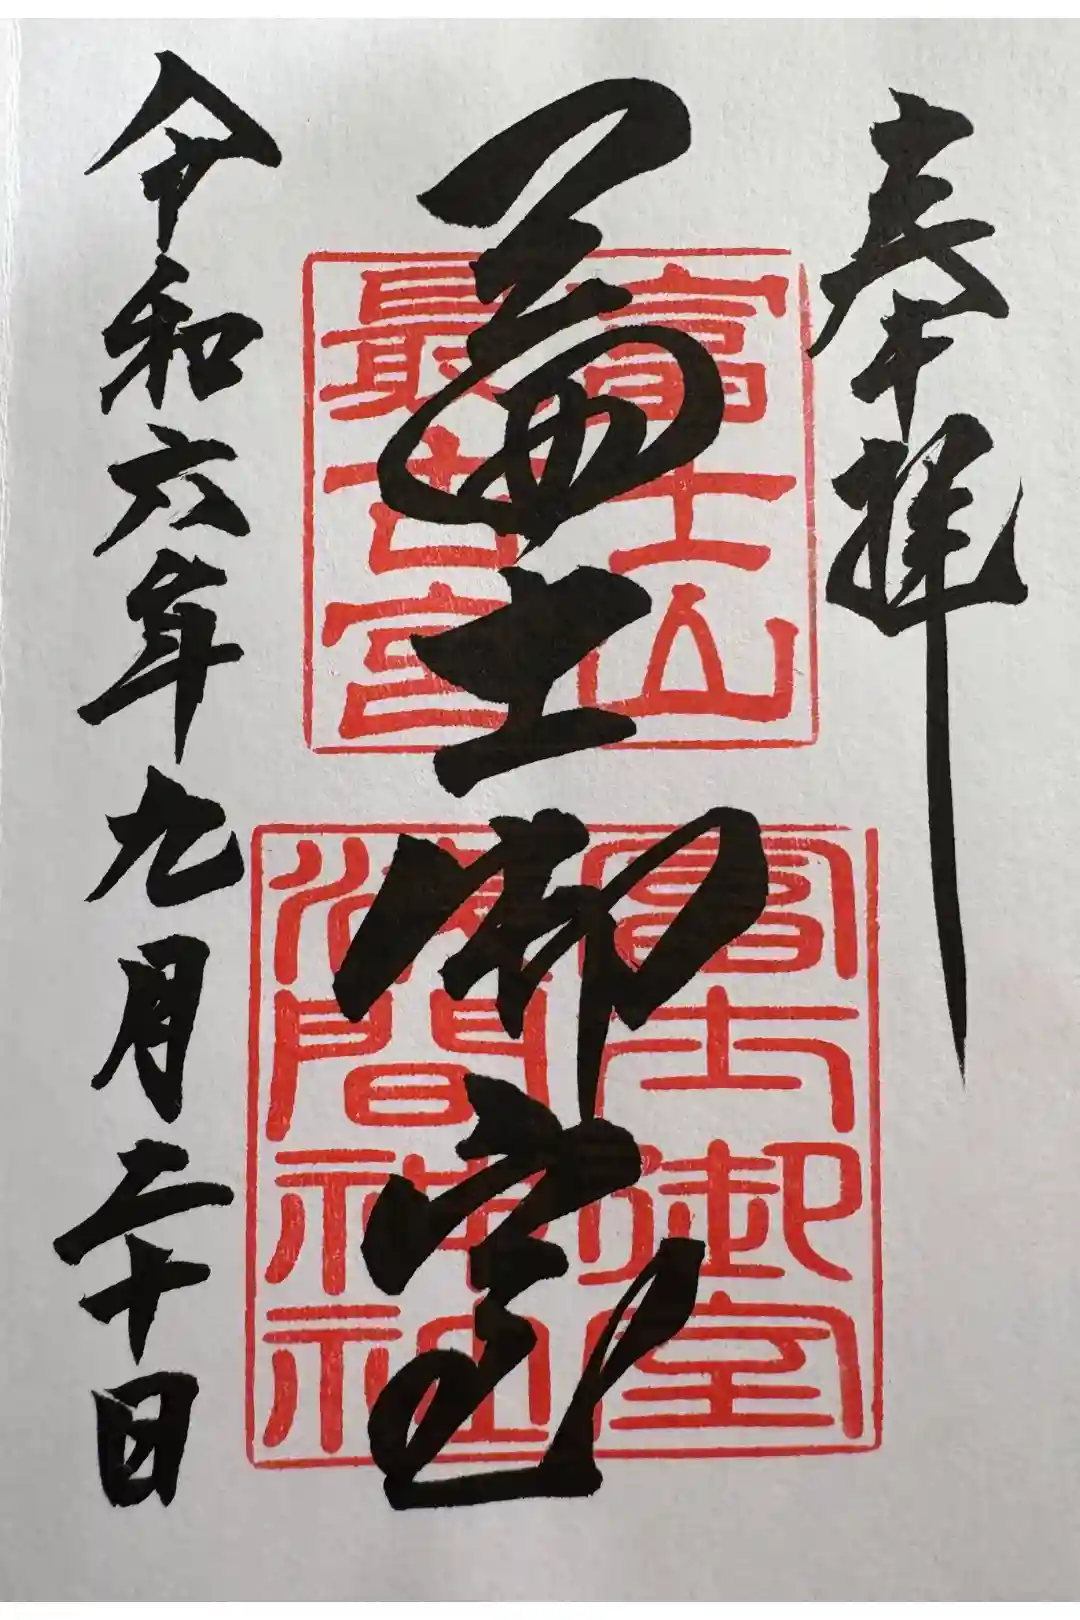 奉拝
冨士御室
令和六年九月二十日
冨士山
最古宮
冨士御室
浅間神社